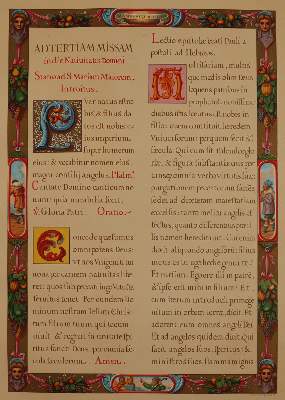 AD TERTIAM MISSAM
in die Nativitatis Domini
Statio ad S. Mariam Maiorem.
Introitus.
Puer natus est no
bis & filius da
tus est nobis: cu
ius imperium,
super humerum
eius: & vocabitur nomen eius,
magni consilij angelus. Psalm.
Cantate Domino canticum no
vum: quia mirabilia fecit.
V. Gloria Patri. Oratio.
Concede quaesumus
omnipotens Deus:
ut nos Unigeniti tui
nova per carnem nativitas libe
ret: quos sub peccati iugo vetusta
servitus tenet. Per eundem Do
minum nostrum Iesum Christum
filium tuum qui tecum
vivit & regnat in unitate Spi
ritus sancti Deus per omnia sae
cula saeculorum. Amen.
Lectio epistolae beati Pauli a
postoli ad Hebraeos.
Multifariam, multis
que modis olim Deus
loquens patribus in
prophetis: novissime
diebus istis locutus est nobis in
filio: quem constituit heredem
universorum: per quem fecit & sae
cula. Qui cum sit splendor glo
riae, & figura substantiae eius por
tansque omnia verbo virtutis suae:
purgationem peccatorum faciens
sedet ad dexteram maiestatis in
excelsis: tanto melior angelis ef
fectus, quanto differentius prae
illis nomen hereditavit. Cui enim
dixit aliquando angelorum: filius
meus es tu, ego hodie genui te?
Et rursum: Ego ero illi in patrem,
& ipse erit mihi in filium? Et
cum iterum introducit primoge
nitum in orbem terrae, dicit. Et
adorent eum omnes angeli Dei.
Et ad angelos quidem dicit: Qui
facit angelos suos spiritus: & mi
nistros suos flammam ignis